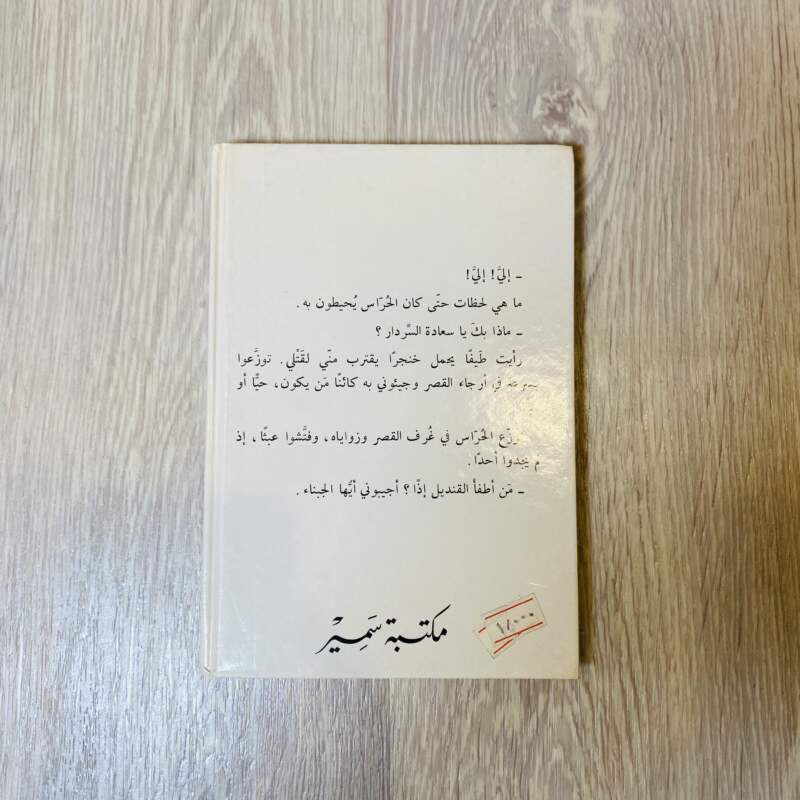 - إليَّ! إليَّ!
ما هي لحظات حتّى كان الحُرّاس يُحيطون به.
- ماذا بكَ يا سعادة السِّردار؟
رأيت طَيفًا يحمل خنجرًا يقترب منّي لقَتْلي. توزَّعوا
في أرجاء القصر وجيئوني به كائنًا مَن يكون، حيًّا أو
الحُرّاس في غُرف القصر وزواياه، وفتَّشوا عبثًا، إذ
يجدوا أحدًا.
- مَن أطفأ القنديل إذًا؟ أجيبوني أيُّها الجبناء.
مكتبة سَمِيْر
١٨٠٠٠